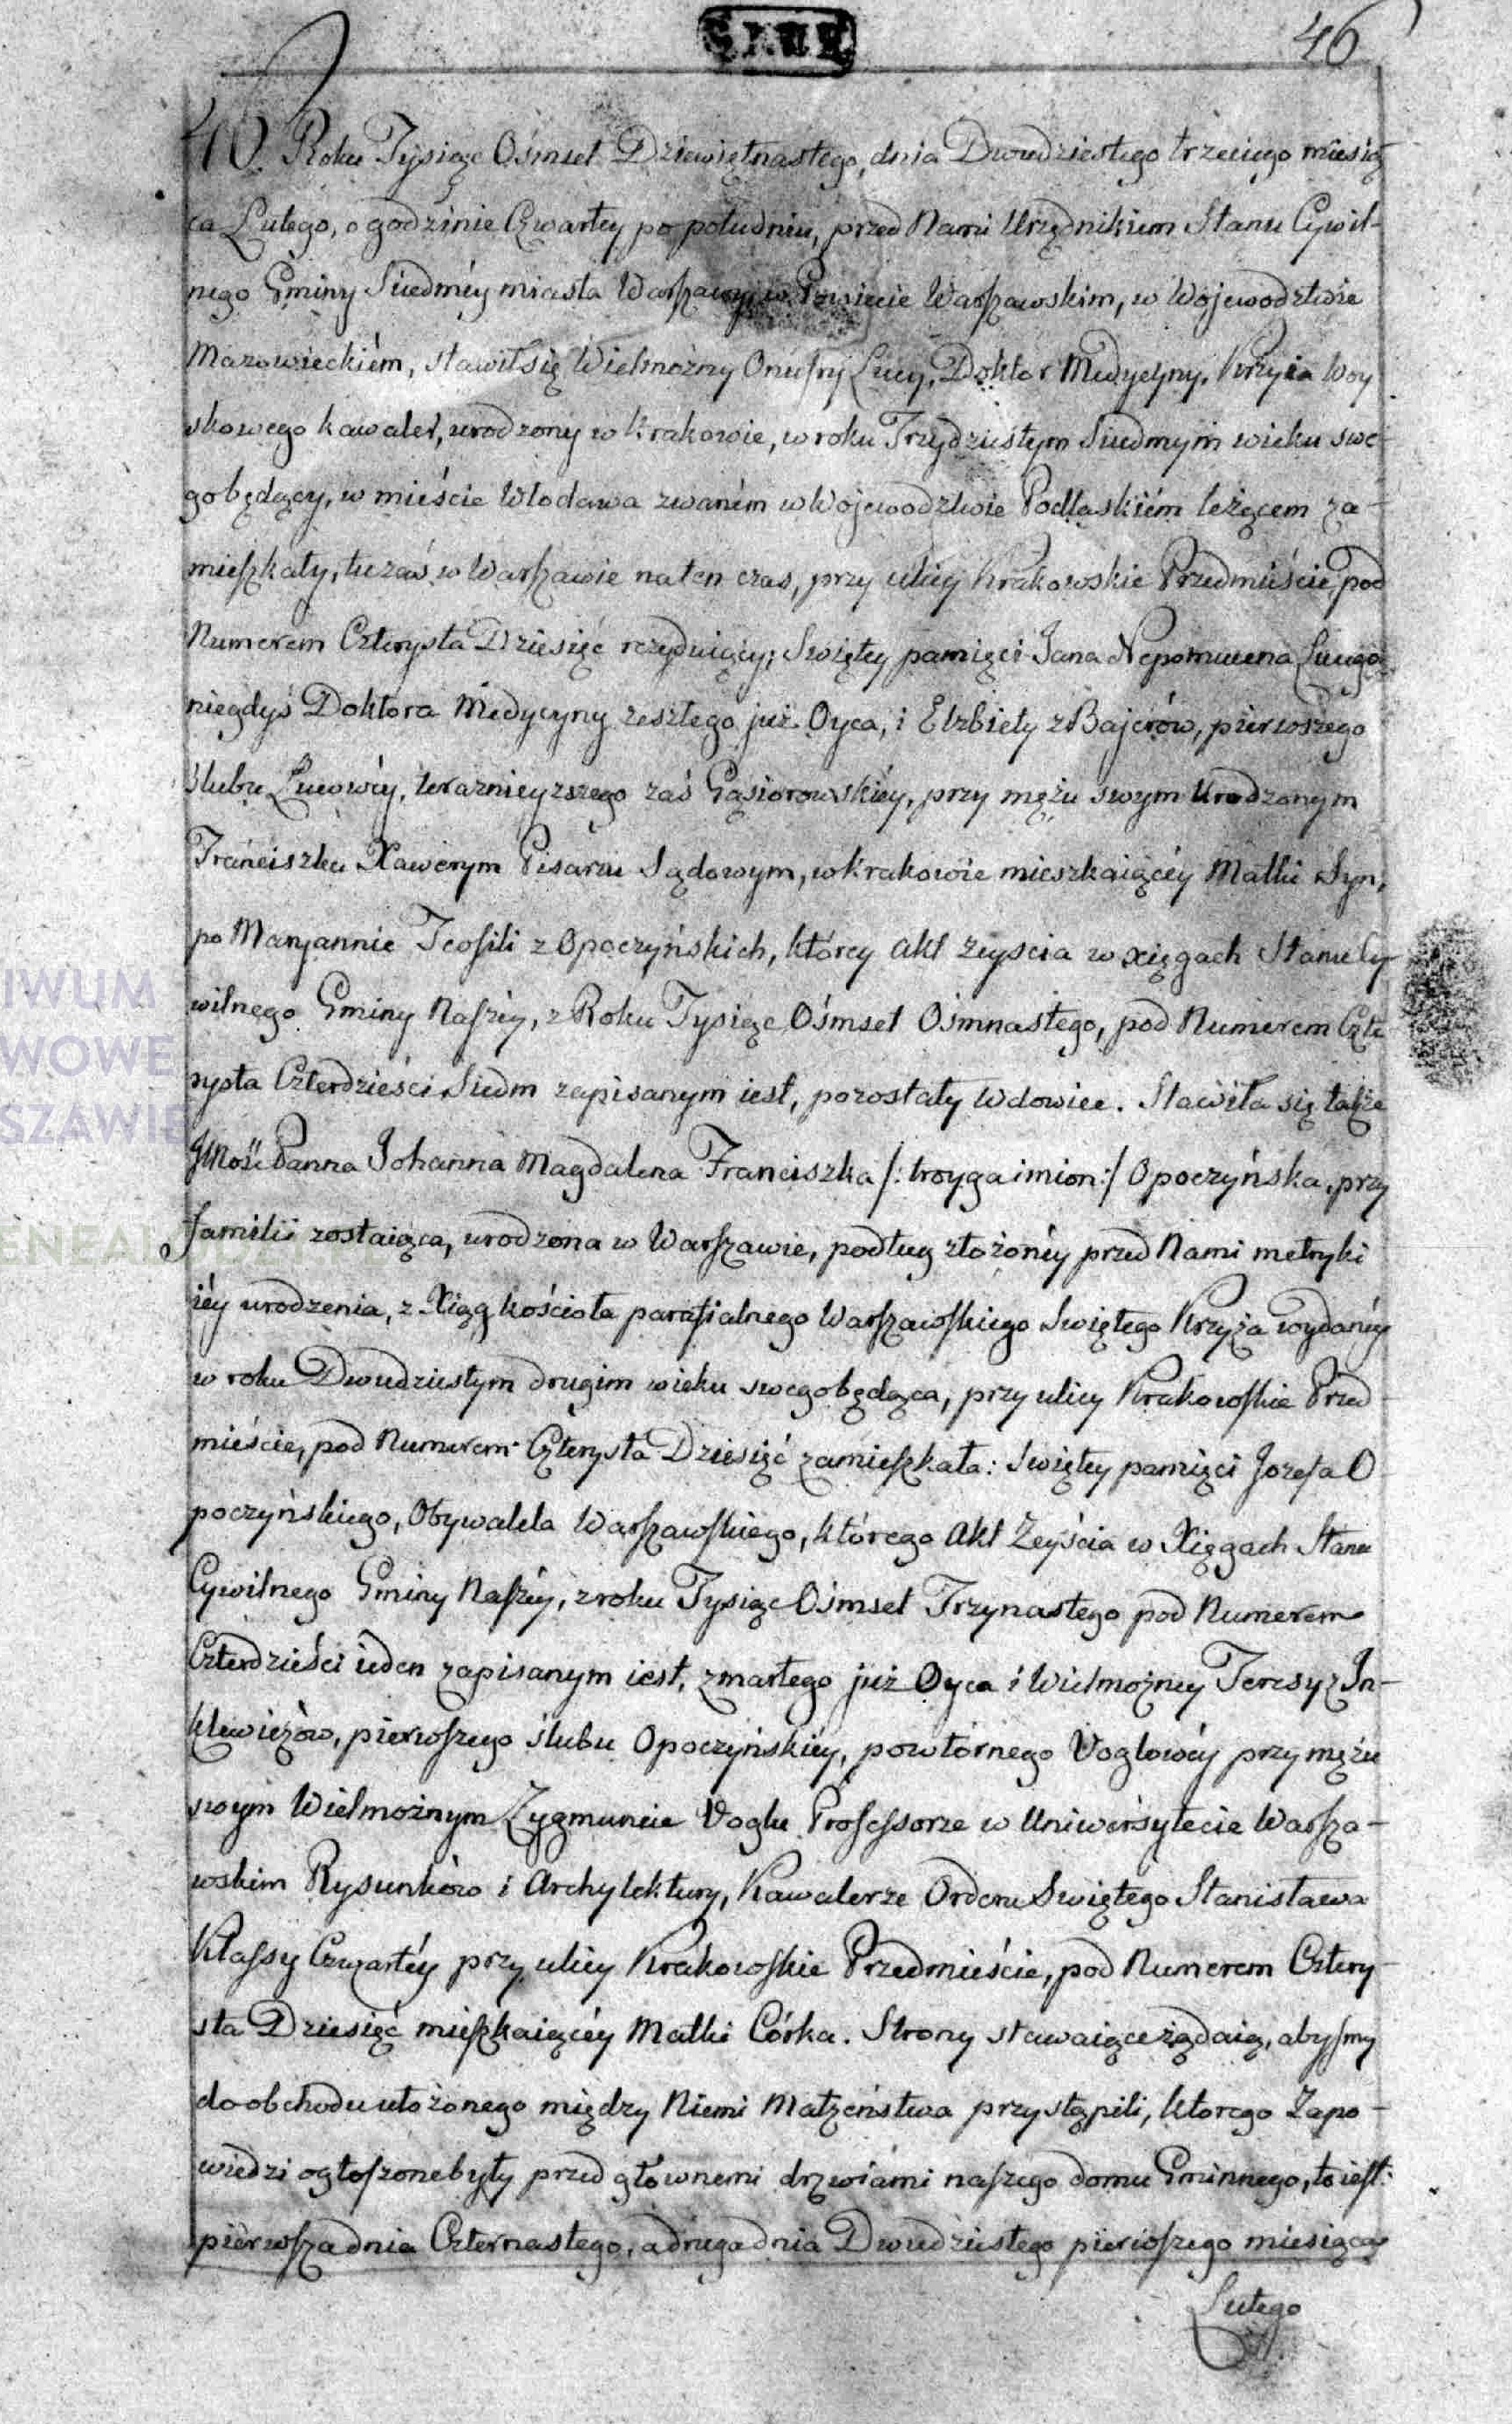 46
40. Roku Tysiąc Ośmset Dziewiętnastego, dnia Dwudziestego trzeciego miesią
ca Lutego, o godzinie Czwartey po południu, przed Nami Urzędnikiem Stanu Cywil-
nego Gminy Siedméy miasta Warszawy w Powiecie Warszawskim, w Wojewodztwie
Mazowieckiém, stawił się Wielmożny Onufry Lucy, Doktor Medycyny, Krzyża Woy
skowego kawaler, urodzony w Krakowie, w roku Trzydziestym Siedmym wieku swe-
go będący, w mieście Włodawa zwaném w Wojewodztwie Podlaskiém leżącem za-
mieszkały, tu zaś w Warszawie na ten czas, przy ulicy Krakowskie Przedmieście, pod
Numerem Czterysta Dziesięć rezyduiący; Swiętey pamięci Jana Nepomucena Lucego
niegdyś Doktora Medycyny zeszłego już Oyca, i Elzbiety z Bajerów, pierwszego
slubu Lucowéy, teraznieyszego zaś Gąsiorowskiéy, przy mężu swym Urodzonym
Franciszku Xawerym Pisarzu Sądowym, w Krakowie mieszkaiącéy Matki Syn,
po Maryannie Teofili z Opoczyńskich, którey akt zeyscia w xięgach Stanu Cy
wilnego Gminy Naszéy, z Roku Tysiąc Ośmset Ośmnastego, pod Numerem Czte
rysta Czterdzieści Siedm zapisanym iest, pozostały Wdowiec. Stawiła się także
JMość Panna Johanna Magdalena Franciszka /: troyga imion :/ Opoczyńska, przy
familii zostaiąca, urodzona w Warszawie, podług złożonéy przed Nami metryki
iéy urodzenia, z Xiąg kościoła parafialnego Warszawskiego Swiętego Krzyża wydanéy
w roku Dwudziestym drugim wieku swego będąca, przy ulicy Krakowskie Przed-
mieście, pod Numerem Czterysta Dziesięć zamieszkała: Swiętey pamięci Jozefa O
poczyńskiego, Obywatela Warszawskiego, którego Akt Zeyścia w Xięgach Stanu
Cywilnego Gminy Naszéy, z roku Tysiąc Ośmset Trzynastego pod Numerem
Czterdzieści ieden zapisanym iest, zmarłego już Oyca i Wielmożney Teresy z In-
klewiczów, pierwszego ślubu Opoczyńskiéy, powtórnego Voglowéy przy mężu
swym Wielmożnym Zygmuncie Voglu Professorze w Uniwersytecie Warsza-
wskim Rysunków i Archytektury, Kawalerze Orderu Swiętego Stanisława
Klassy Czwartéy przy ulicy Krakowskie Przedmieście, pod Numerem Cztery-
sta Dziesięć mieszkaiącéy Matki Córka. Strony stawaiące żądaią, abysmy
do obchodu ułożonego między Niemi Małżeństwa przystąpili, którego Zapo-
wiedzi ogłoszone były przed głównemi drzwiami naszego domu Gminnego, to iest:
pierwsza dnia Czternastego, a druga dnia Dwudziestego pierwszego miesiąca
Lutego
IWUM
WOWE
SZAWIE
ENEAL